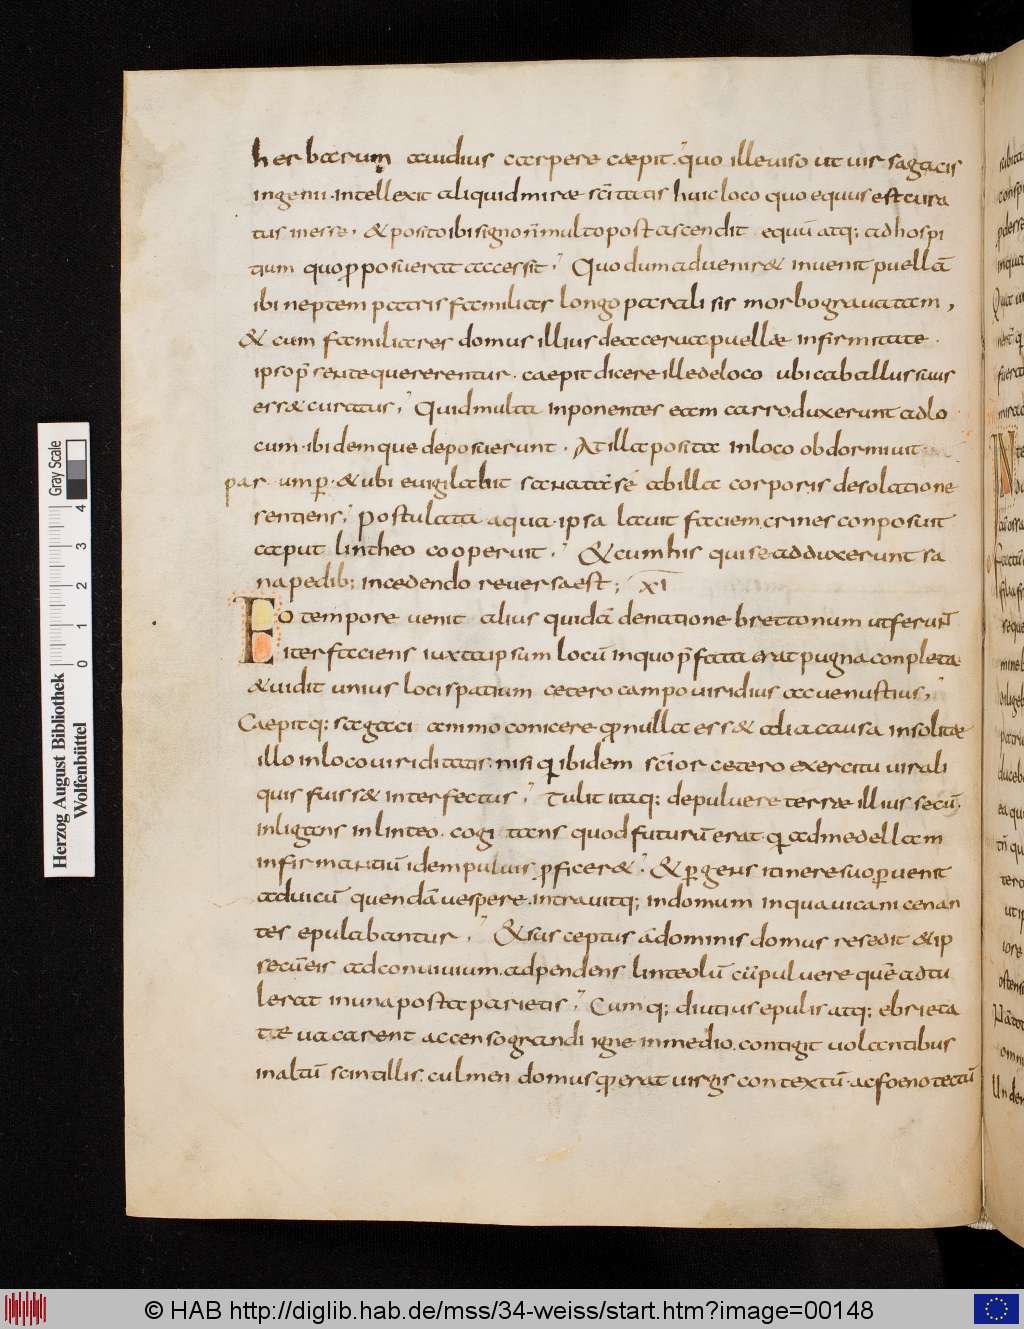 herbarum auidius carpere caepit. quo ille uiso ut uir sagacis
ingenii. intellexit aliquid mirae sc̄itatis huic loco quo equus est cura
tus inesse. & posito ibi signo n̄ multo post ascendit equū atq; ad hospi
tium quo p̱posuerat accessit. Quo dum aduenir& inuenit puellā
ibi neptem patris familias longo paralisis morbo grauatam,
& cum familiares domus illius de acerua puellae infirmitate.
ipso p̄sente quererentur. caepit dicere ille de loco ubi caballus suus
ess& curatus. Quid multa inponentes eam carro duxerunt ad lo
cum. ibidemque deposuerunt. At illa posita in loco obdormiuit
par um ꝑ. & ubi euigilabit sanatā sē ab illa corporis desolatione
sentiens. Postulata aqua. ipsa lauit faciem crines conposuit
caput lintheo cooperuit. & cum his qui se adduxerunt sa
na pedib; incedendo reuersa est; XI
Eo tempore uenit alius quidā de natione brettonum ut ferunt
iter faciens iuxta ipsum locū in quo p̄fata erat pugna conpleta
& uidit unius loci spatium cetero campo uiridius ac uenustius,
Caepitq; sagaci animo conicere qđ nulla ess& alia causa insolitae
illo in loco uiriditatis. nisi qđ ibidem sc̄ior cetero exercitu uir ali
quis fuiss& interfectus. Tulit itaq; de puluere terrae illius secū.
inligans in linteo. cogitans quod futurū erat qđ ad medellam
infirmantiū idem puluis p̱ficer&. & ꝑgens itinere suo ꝑuenit
ad uicū quendā uespere. intrauitq; in domum in qua uicani cenan
tes epulabantur. & susceptus a dominis domus resedit & ip
se cū eis ad conuiuium. adpendens linteolū cū puluere quē adtu
lerat in una posta parietis. Cumq; diutius epulis atq; ebrieta
tae uacarent accenso grandi igne in medio. contigit uolantibus
in altū scintillis. culmen domus qđ erat uirgis contextū. ac foeno tectū
Gray Scale
4
3
2
1
0
Herzog August Bibliothek
Wolfenbüttel
© HAB http://diglib.hab.de/mss/34-weiss/start.htm?image=00148